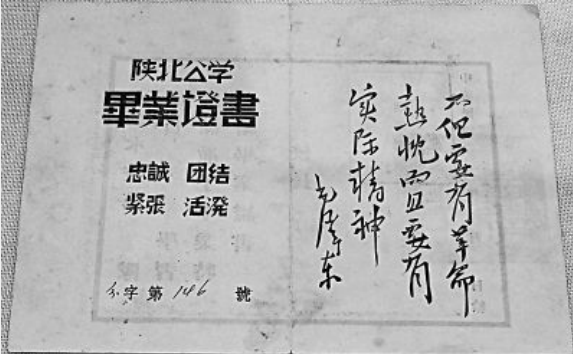 陕北公学
畢業證書
忠誠 团結
緊張 活潑
字第146號
不但要有革命
热忱而且要有
实际精神
毛泽东